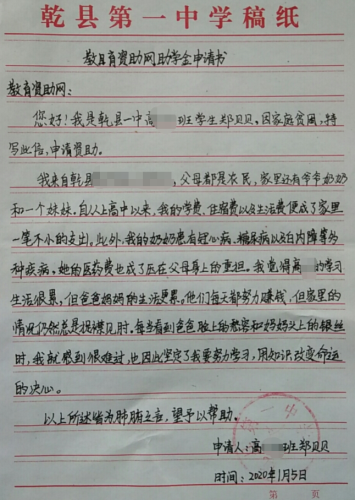 乾县第一中学稿纸
教育资助网助学金申请书
教育资助网：
您好！我是乾县一中高 班学生郑贝贝，因家庭贫困，特
写此信，申请资助。
我来自乾县 ，父母都是农民，家里还有爷爷奶奶
和一个妹妹，自从上高中以来，我的学费、住宿费以及生活费便成了家里
一笔不小的支出。此外，我的奶奶患有冠心病、糖尿病以及白内障等多
种疾病，她的医药费也成了压在父母身上的重担。我觉得高 的学习
生活很累，但爸爸妈妈的生活更累。他们每天都努力赚钱，但家里的
情况仍然总是捉襟见肘，每当看到爸爸脸上的愁容和妈妈头上的银丝
时，我就感到很难过，也因此坚定了我要努力学习，用知识改变命运
的决心。
以上所述皆为肺腑之言，望予以帮助。
申请人：高 班郑贝贝
时间：2020年1月5日
第 页